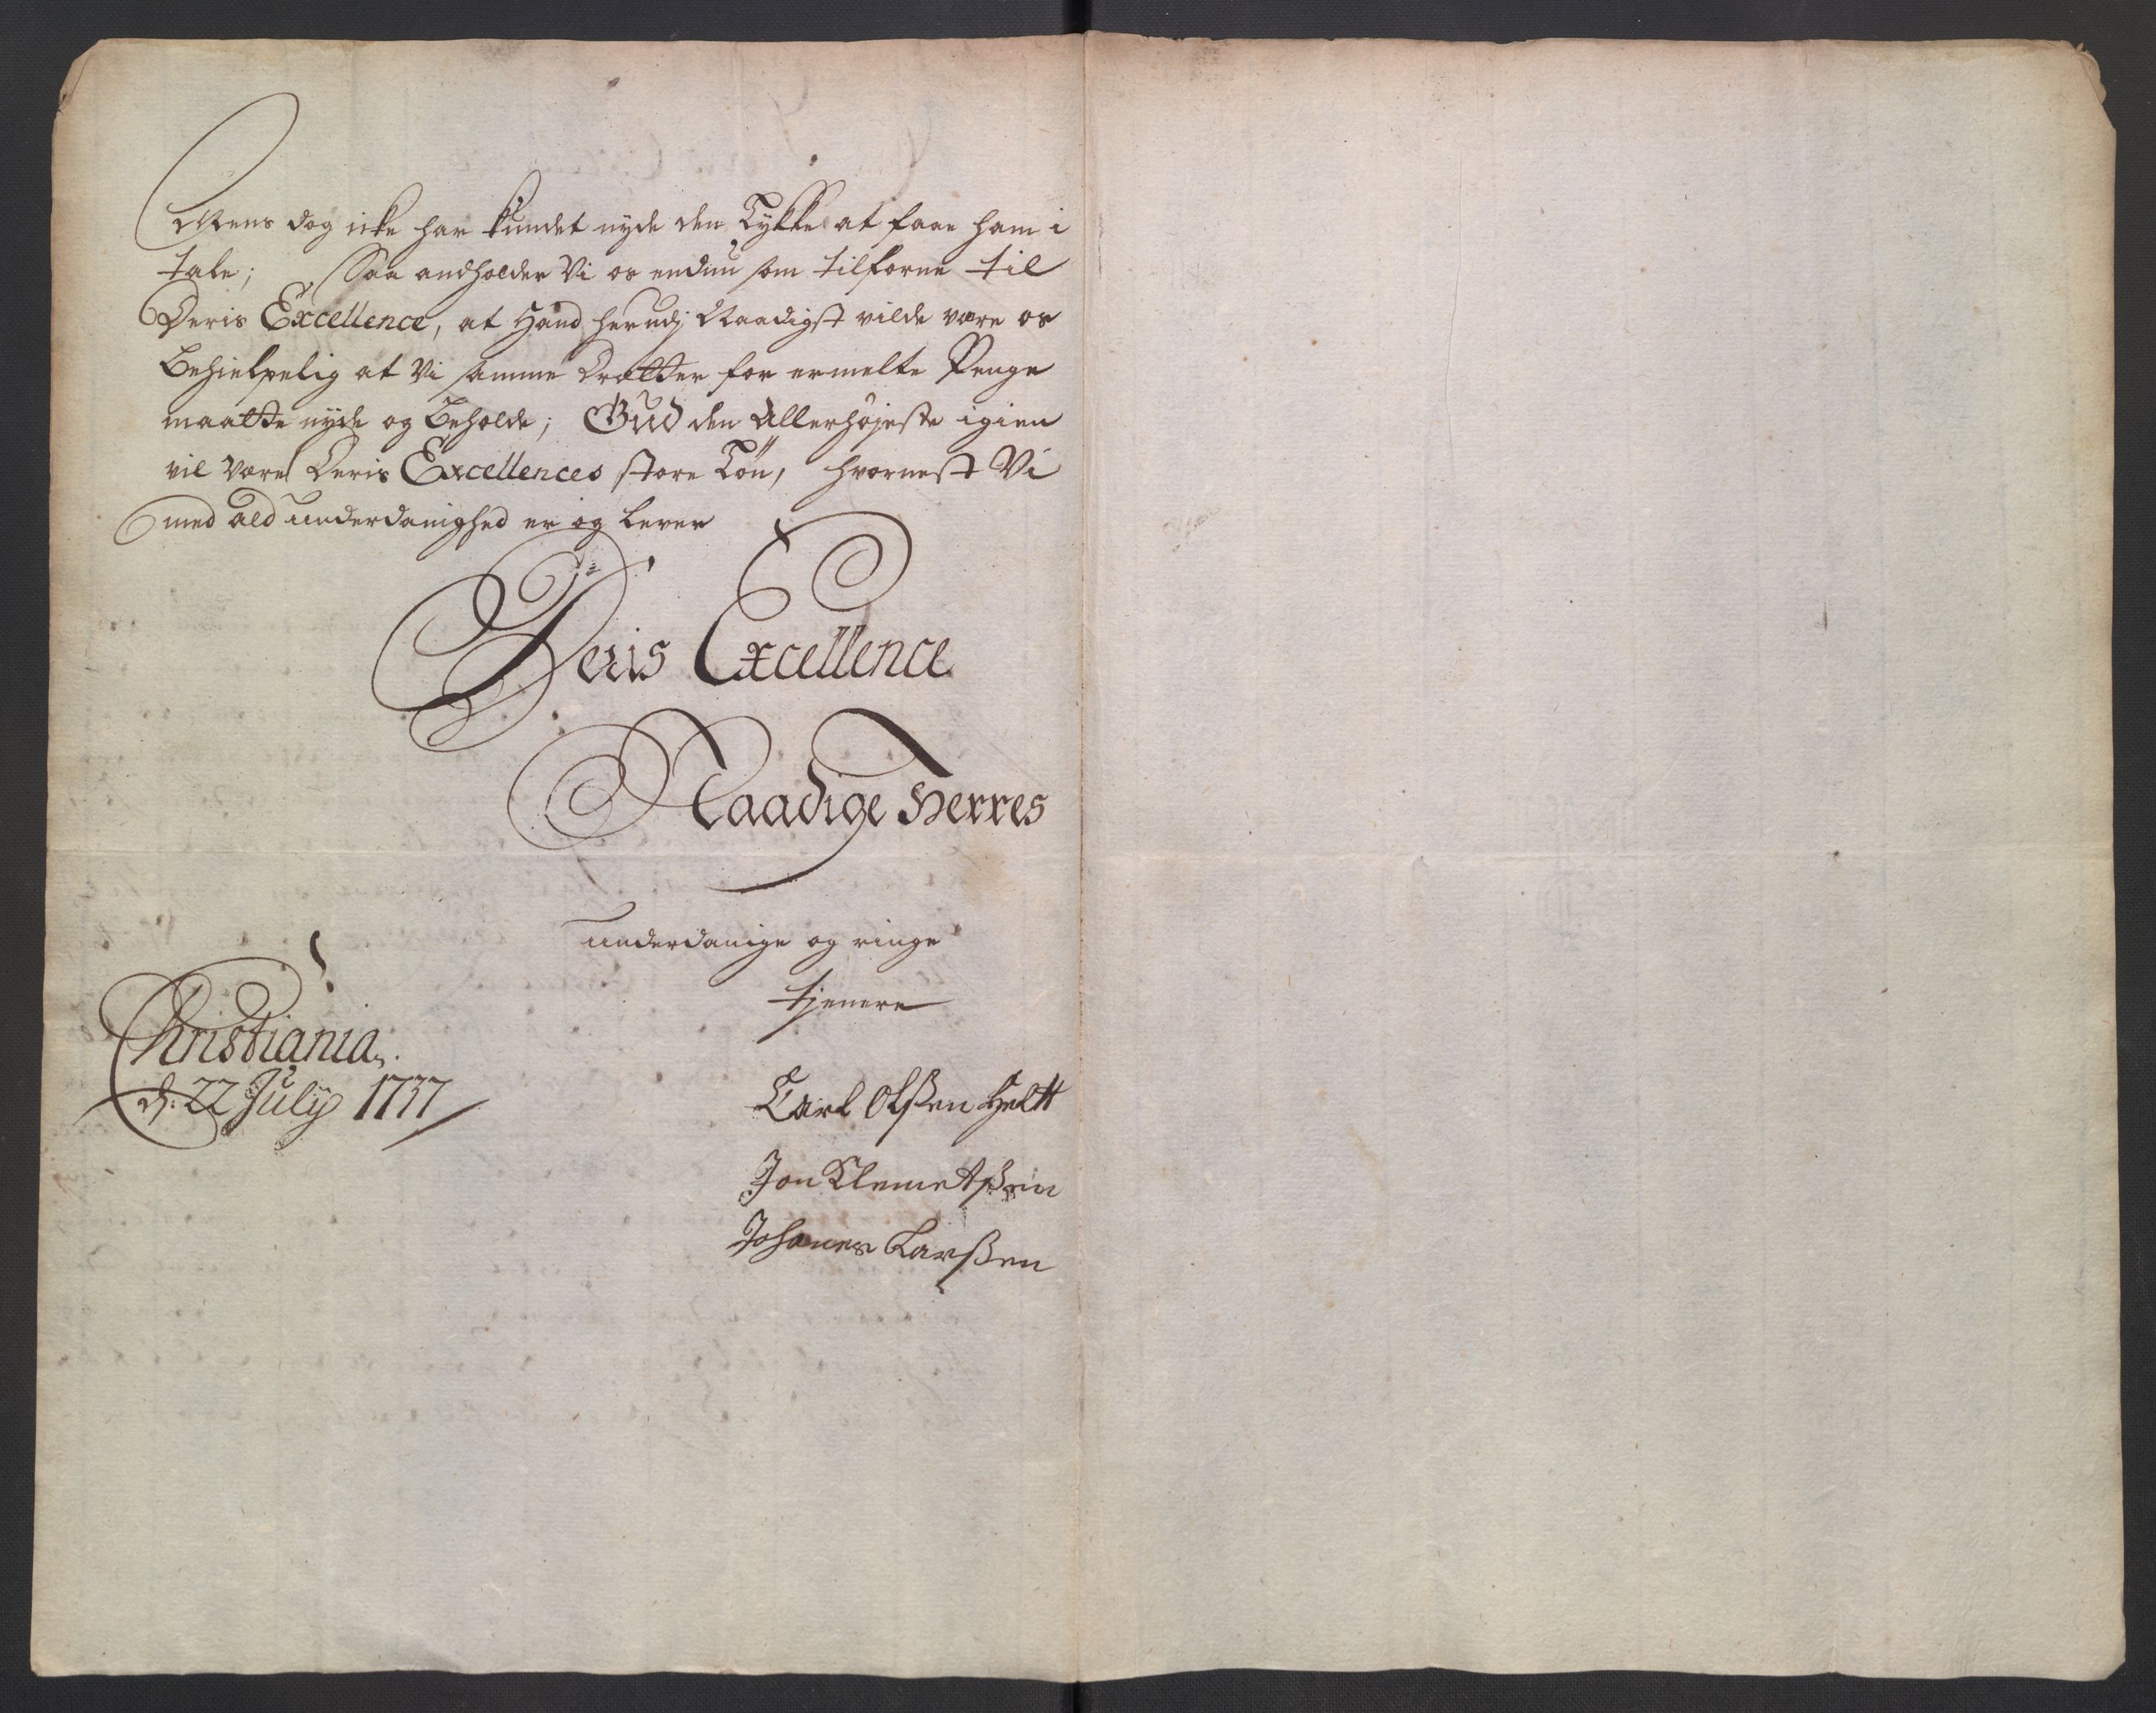 Mens dog icke har kundet nyde den Lykke at faae ham i
tale; Saa andholder Vi os endnu som tilforne til
Deris Excellence, at Hand herudj Naadigst vilde være os
Behielpelig at Vi samme Drætter for ermelte Penge
maatte nyde og Beholde; Gud den Allerhøjeste igien
vil være Deris Excellences store Løn, hvornest Vi
med ald underdanighed er og lever
Deris Excellence
Naadige Herres
underdanige og ringe
tjenere
Christiania
d: 22 July 1737
Carl Olßen Helt
Jon Klemetßen
Johanes Larßen